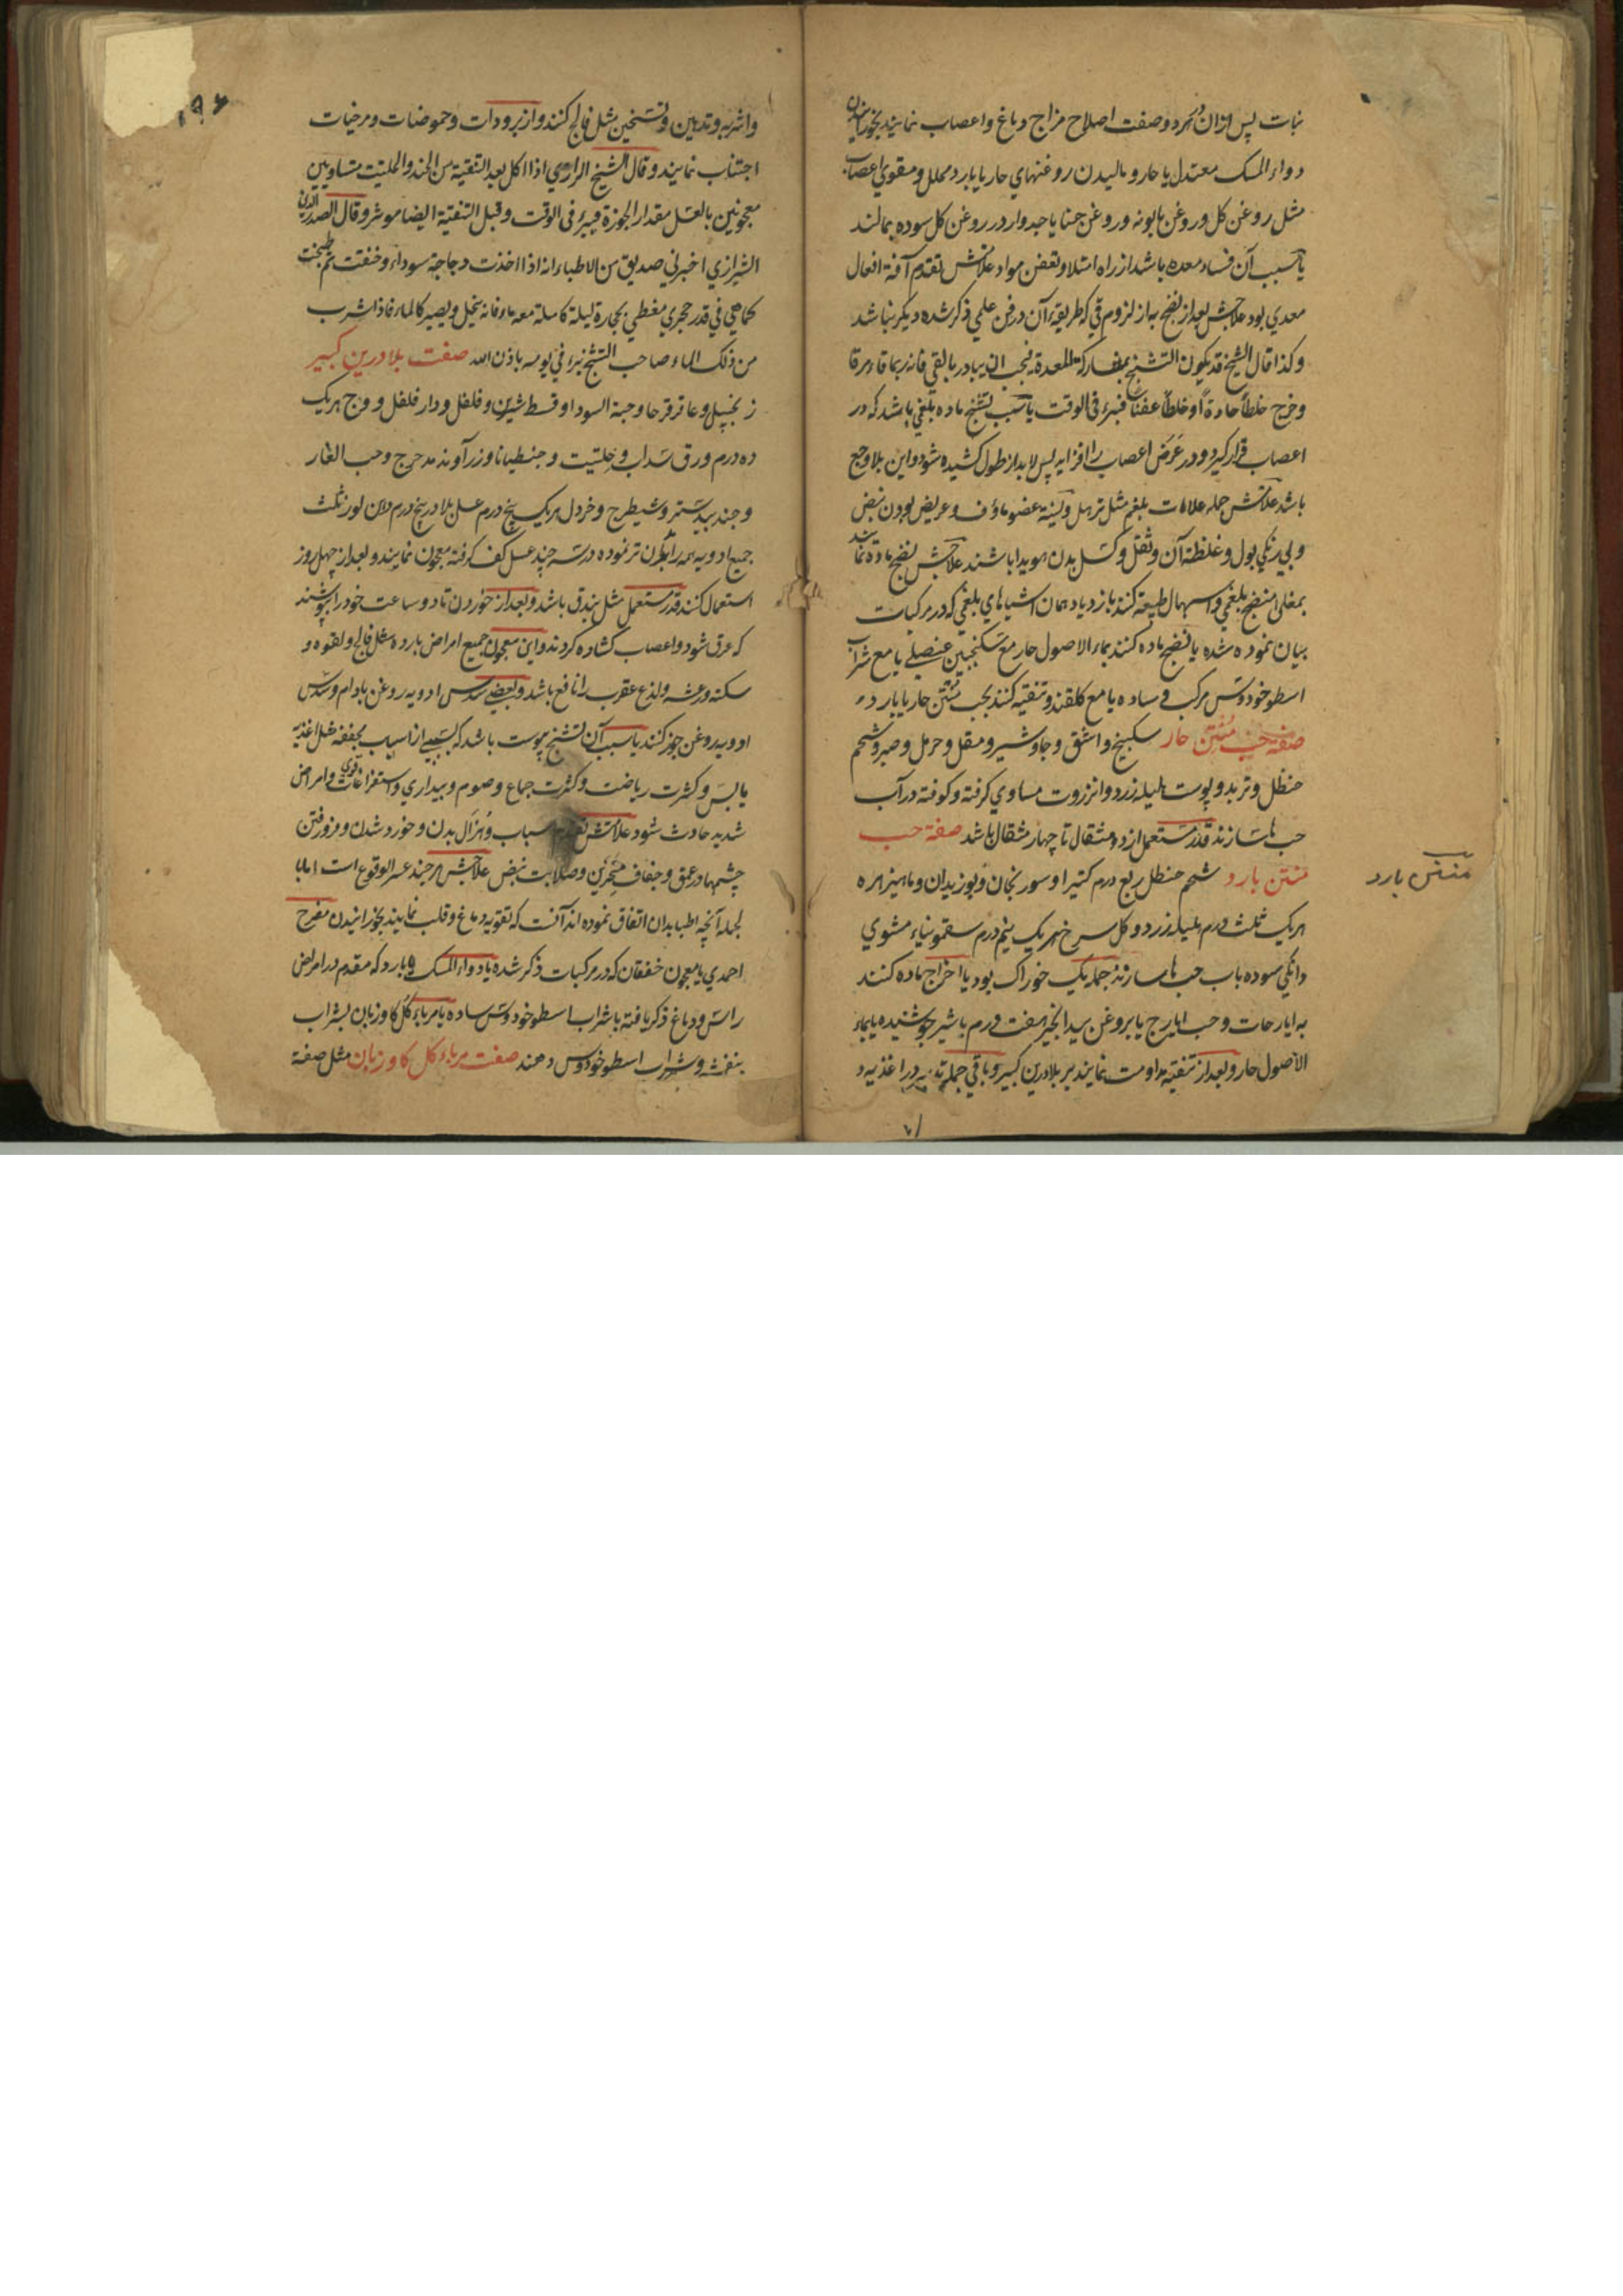 نبات پس ازان در هر دو صفت اصلاح مزاج دماغ و اعصاب نمایند بخورانیدن
دواء المسک معتدل یا حار و مالیدن روغنهای حار یا بارد محلل و مقوی اعصاب
مثل روغن کل و روغن بابونه و روغن حنا یا جدوار در روغن کل سوده بمالند
یا سبب آن فساد معده باشد از راه امتلا و تعفن مواد علامتش تقدم آفة افعال
معدی بود علاجش بعد از نضج به از لزوم قی که طریقهٔ آن در فن علمی ذکر شده دیکر نباشد
و کذا قال الشیخ قد یکون التشنج بمشارکة المعدة فیجب ان یبادر بالقی فانه ربما قاء مرة
و خرج خلطاً حادةً او خلطاً عفناً فبرئ فی الوقت یا سبب تشنج ماده بلغمی باشد که در
اعصاب قرار کیرد و در عرض اعصاب را افزاید پس لابد از طول کشیده شود و این بلا وجع
باشد علامتش جمله علامات بلغم مثل ترهل و لینة عضو ماؤف و عریض بودن نبض
و بی رنکی بول و غلظة آن و ثقل و کسل بدن هویدا باشند علاجش نضج ماده نمایند
بمغلی منضج بلغمی و اسهال طبیعة کنند بازدیاد همان اشیاهای بلغمی که در مرکبات
بیان نموده شده یا نضج ماده کنند بماء الاصول حار مع سکنجبین عنصلی یا مع شراب
اسطوخودوس مرکب و ساده یا مع کلقند و تنقیه کنند بحب منتن حار یا بارد
صفة حب منتن حار سکبینج و اشق و جاوشیر و مقل و حرمل و صبر و شحم
حنظل و تربد و پوست هلیله زرد و انزروت مساوی کرفته و کوفته در آب
حب ها سازند قدر مستعمل از دو مثقال تا چهار مثقال باشد صفة حب
منتن بارد شحم حنظل ربع درم کتیرا و سورنجان و بوزیدان و ماهیزهره
هریک ثلث درم هلیله زرد و کل سرخ هریک نیم درم سقمونیاء مشوی
دانکی سوده باب حب ها سازند جمله یک خوراک بود یا اخراج ماده کنند
به ایارجات و حب ایارج یا بروغن بید انجیر هفت درم با شیر جوشنیده یا بماء
الاصول حار و بعد از تنقیه مداومت نمایند بر بلادرین کبیر و باقی جمله تدبیر در اغذیه و
منتن بارد
۱۹۶
و اشربه و تدهین و تسخین مثل فالج کنند و از برودات و حموضات و مرخیات
اجتناب نمایند و قال الشیخ الرازی اذا اکل بعد التنقیة من الجند و الحلتیت متساویین
معجونین بالعسل مقدار الجوزة فیبرئ فی الوقت و قبل التنقیة ایضا موثر و قال الصدر الدین
الشیرازی اخبرنی صدیق من الاطباء انه اذا اخذت دجاجة سوداء و خنقت ثم طبخت
کماهی فی قدر حجری مغطی بحجارة لیلة کاملة معه ماء فانه ینحل و یصیر کالماء فاذا شرب
من ذلک الماء صاحب التشنج یبرئ فی یومه باذن الله صفت بلادرین کبیر
زنجبیل و عاقرقرحا و حبة السودا و قسط شیرین و فلفل و دار فلفل و وج هریک
ده درم ورق سداب و حلتیت و جنطیانا و زرآوند مدحرج و حب الغار
و جندبیدستر و شیطرج و خردل هریک پنج درم عسل بلادر پنج درم
جمیع ادویه همه را بآن تر نموده در سه چند عسل کف کرفته معجون نمایند و بعد از چهل روز
استعمال کنند قدر مستعمل مثل بندق باشد و بعد از خوردن تا دو ساعت خود را بپوشند
که عرق شود و اعصاب کشاده کردند و این معجون جمیع امراض بارده مثل فالج و لقوه و
سکته و رعشه و لذع عقرب را نافع باشد و بعضی سدس ادویه روغن بادام و سدس
ادویه روغن جوز کنند یا سبب آن تشنج یبوست باشد که بسببی از اسباب مجففه مثل اغذیه
یابس و کثرت ریاضت و کثرت جماع و صوم و بیداری و استفراغات قوی و امراض
شدید حادث شود علامتش تقدم اسباب و هزال بدن و خورد شدن و فرو رفتن
چشمها در عمق و جفاف منخرین و صلابت نبض علاجش هر چند عسر الوقوع است اما با
لجمله آنچه اطبا بدان اتفاق نموده اند آنست که تقویه دماغ و قلب نمایند بخورانیدن مفرح
احمدی یا معجون خفقان که در مرکبات ذکر شده یا دواء المسک بارد که مقدم در امراض
راس و دماغ ذکر یافته با شراب اسطوخودوس ساده یا مرباء کل کاوزبان بشراب
بنفشه و شراب اسطوخودوس دهند صفت مرباء کل کاوزبان مثل صفة